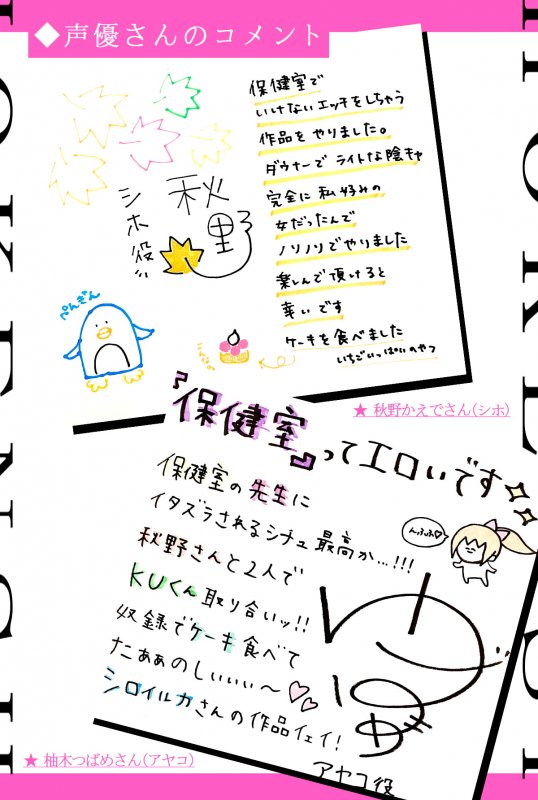 ◆声優さんのコメント
保健室で
いけないエッチをしちゃう
作品をやりました。
ダウナーでライトな陰キャ
完全に私好みの
女だったんで
ノリノリでやりました
楽しんで頂けると
幸いです
ケーキを食べました
いちごいっぱいのやつ
秋
里
シホ役!!
ぺんぎん
★ 秋野かえでさん(シホ)
『保健室』ってエロいです
保健室の先生に
イタズラされるシチュ最高か…!!!
秋野さんと2人で
KUくん取り合いッ!!
奴録でケーキ食べて
たぁぁのしぃぃぃ〜
シロイルカさんの作品イェイ!
ゆずき
アヤコ役
★ 柚木つばめさん(アヤコ)